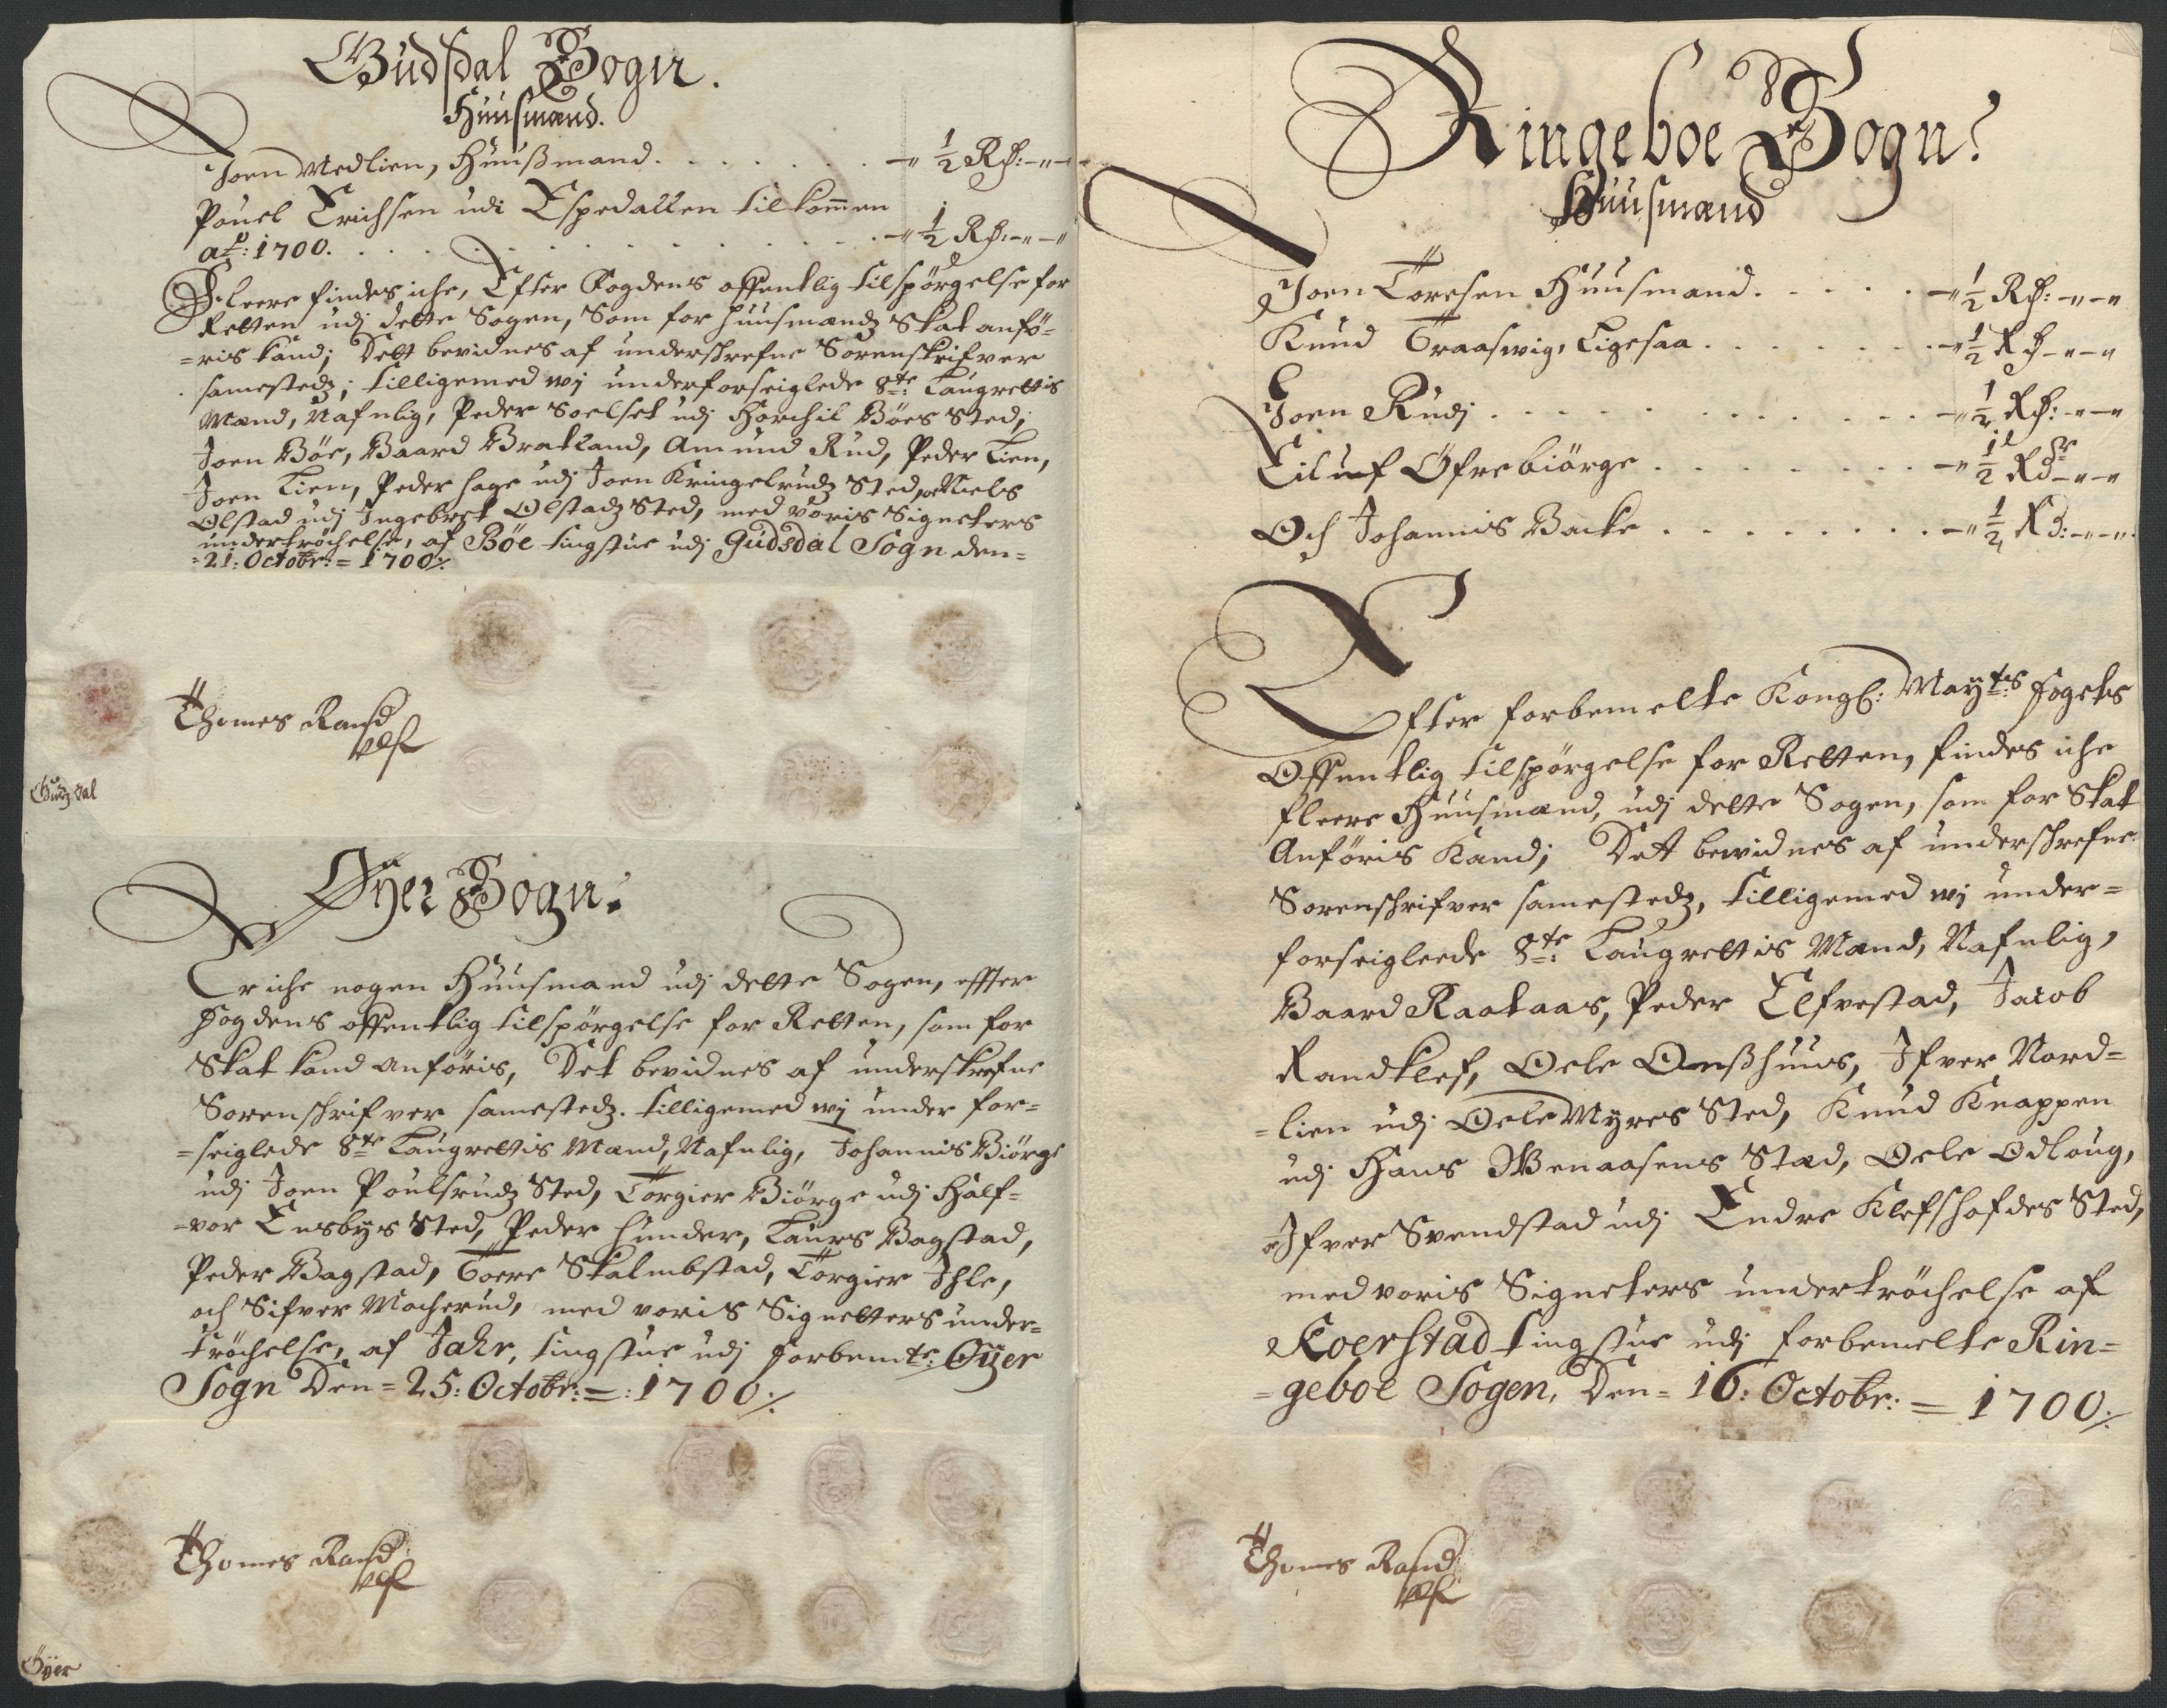 Gudsdal Sogn.
Huusmænd.
Joen Medlien, Huusmand. . . . . . . . -" ½ Rd:-"-
Pouel Erichsen udi Espedallen tilkommen
a͞o: 1700. . . . . . . . . . . . . . -" ½ Rd:-"-"
Fleere findes iche, Efter Fogdens offentlig tilspörgelse for
Retten udj dette Sogen, Som for huusmændz Skat anfö-
=ris kand; Dett bevidnes af underschrefne Sorenskrifver
samestedz; tilligemed wj underforseiglede 8te: Laugrettis
Mænd, Nafnlig, Peder Soelset udj Horchil Böes Sted,
Joen Böe, Baard Bratland, Amund Rud, Peder Lien,
Joen Lien, Peder hage udj Joen Kringelrudz Sted, oc Niels
Olstad udj Ingebret Olstadz Sted, med Voris Signeters
undertröchelse, af Böe tingstue udj Gudsdal Sogn den=
=21: Octobr:= 1700 ⁒
Thomes Rand
Gudzdal
Öÿer Sogn:
Er iche nogen Huusmand udj dette Sogen, effter
Fogdens offentlig tilspörgelse for Retten, som for
Skat kand anföris, Det bevidnes af underskrefne
Sorenschrifver samestedz. tilligemed wj under for=
=seiglede 8te Laugrettis Mænd, Nafnlig, Johannis Biörge
udj Joen Poulsrudz Sted, Torgier Biörge udj Half=
=vor Ensbys Sted, Peder hunder, Laurs Bagstad,
Peder Bagstad, Toere Skalmbstad, Torgier Ihle,
och Sifver Mocherud, med voris Signetters under=
tröchelse, af Jahr, tingstue udj forbemte: Öÿer
Sogn Den=25: Octobr:=:1700 ⁒
Thomes Rand
Öÿer
Ringeboe Sogn:
Huusmænd
Joen Toresen Huusmand. . . . . -" ½ Rd:-"-"
Knud Traaswig, Ligesaa . . . . . . -" ½ Rd-"-"
Joen Rudj . . . . . . . . . . . -" ½ Rd:-"-"
Eiluf Öfrebiörge . . . . . . . -" ½ Rdr-"-"
Och Johannis Backe . . . . . . . . -" ½ Rd:-"-"
Efter forbemelte Kongl: Maÿts: fogets
Offentlig tilspörgelse for Retten, findes iche
fleere Huusmænd, udj dette Sogen, som for Skat
Anföris Kand; Det bewidnes af underschrefne
Sorenschrifver samestedz, tilligemed wj under=
forseigleede 8te: Laugrettis Mænd, Nafnlig,
Baard Raataas, Peder Elfvestad, Jacob
Randklef, Oele Onsshuus, Ifver Nord=
=lien udj Oele Myres Sted, Knud Knappen
udj Hans Wenaasens Stæd, Oele Odloug,
oc Ifver Svendstad udj Endre Klefshofdes Sted,
med voris Signeters undertröchelse af
Koerstad tingstue udj forbemelte Rin=
=geboe Sogen, Den= 16: Octobr: = 1700 ⁒
Thomes Rand